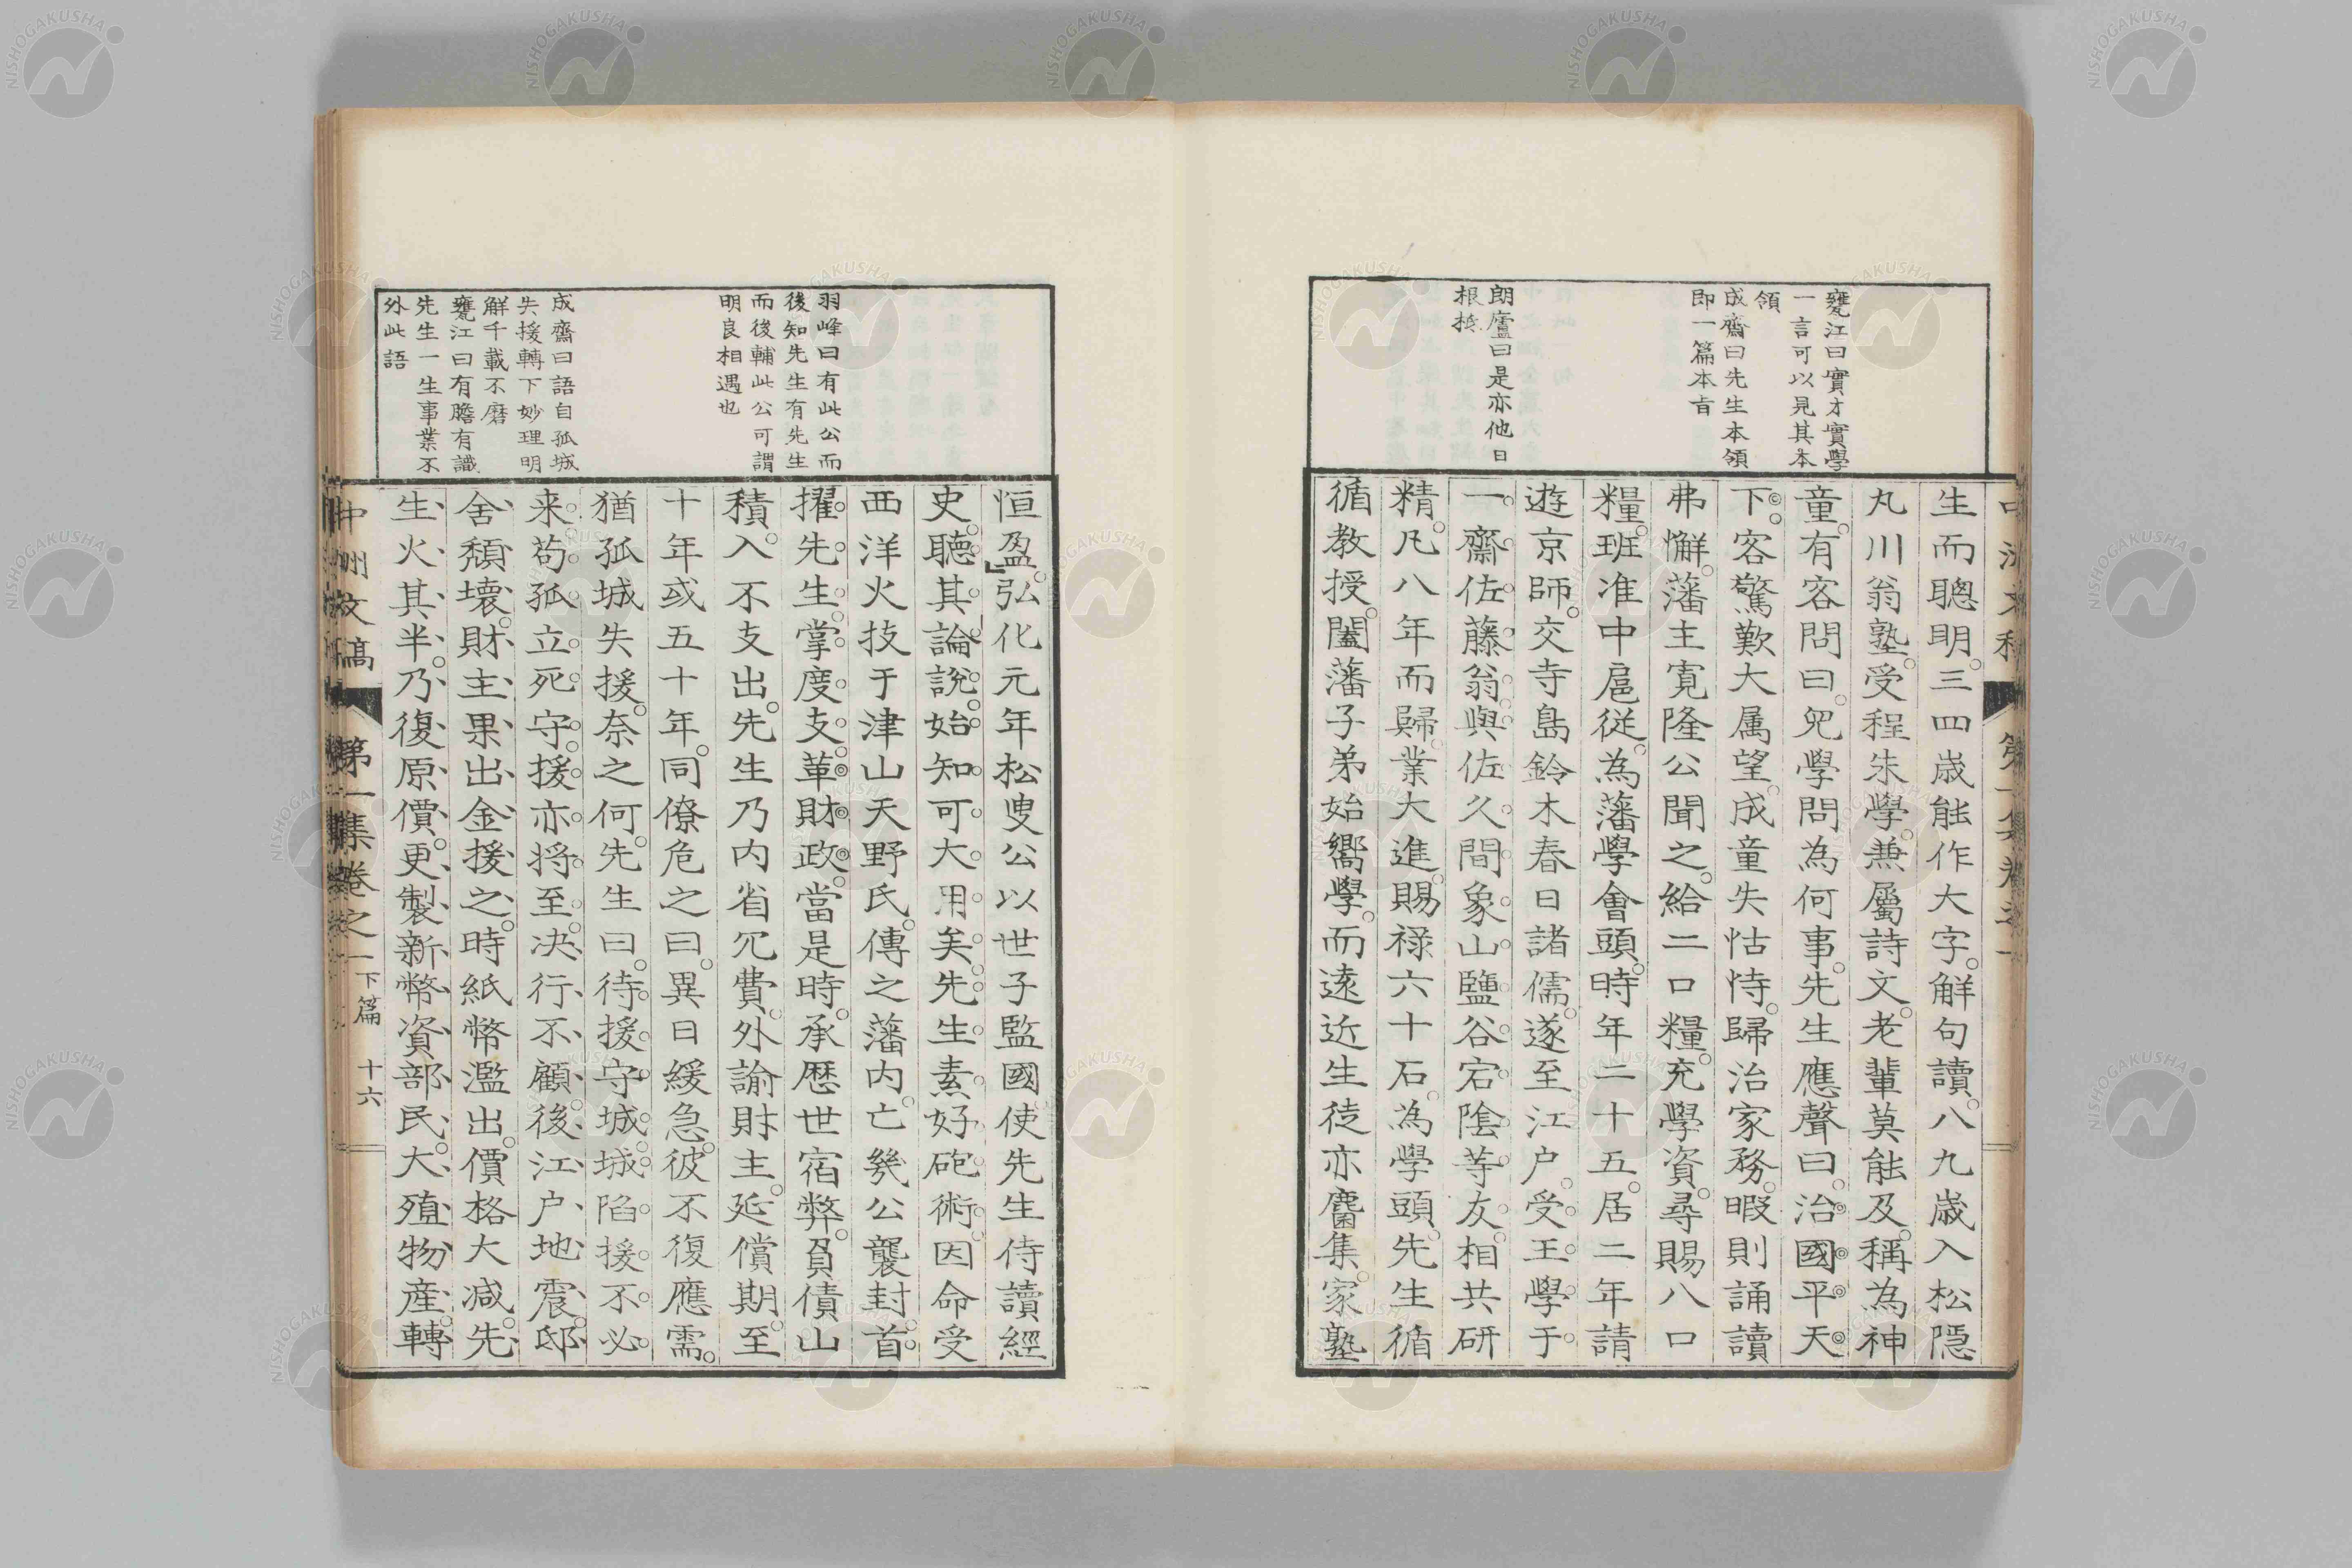 甕江曰實才實學
一言可以見其本
領
成齋曰先生本領
即一篇本旨
朗廬曰是亦他日
根柢
生而聰明。三四歳能作大字。解句讀。八九歳入松隠
丸川翁塾。受程朱學。兼屬詩文。老輩莫能及。稱為神
童。有客問曰。兒學問為何事。先生應聲曰。治國平天
下。客驚歎大属望。成童失怙恃。歸治家務。暇則誦讀
弗懈。藩主寛隆公聞之。給二口糧。充學資。尋賜八口
糧。班准中扈従。為藩學會頭。時年二十五。居二年請
遊京師。交寺島鈴木春日諸儒。遂至江户。受王學于
一齋佐藤翁。與佐久間象山鹽谷宕陰等友。相共研
精。凡八年而歸。業大進。賜禄六十石。為學頭。先生循
循教授。闔藩子弟始嚮學。而遠近生徒亦麕集。家塾
羽峰曰有此公而
後知先生有先生
而後輔此公可謂
明良相遇也
成齋曰語自孤城
失援轉下妙理明
解千載不磨
甕江曰有膽有識
先生一生事業不
外此語
恒盈。弘化元年松叟公以世子監國使先生侍讀經
史。聽其論說。始知可大用矣。先生素好砲術。因命受
西洋火技于津山天野氏。傳之藩内。亡幾公襲封。首
擢先生。掌度支。革財政。當是時。承歴世宿弊。負債山
積。入不支出。先生乃内省冗費。外諭財主。延償期。至
十年或五十年。同僚危之曰。異日緩急。彼不復應需。
猶孤城失援。奈之何。先生曰。待援守城。城陷援不必
来。苟孤立死守。援亦将至。决行不顧。後江户地震。邸
舍頽壞。財主果出金援之。時紙幣濫出。價格大減。先
生火其半。乃復原價。更製新幣。資部民。大殖物産。轉
中洲文稿
第一集卷之一
下篇
十六